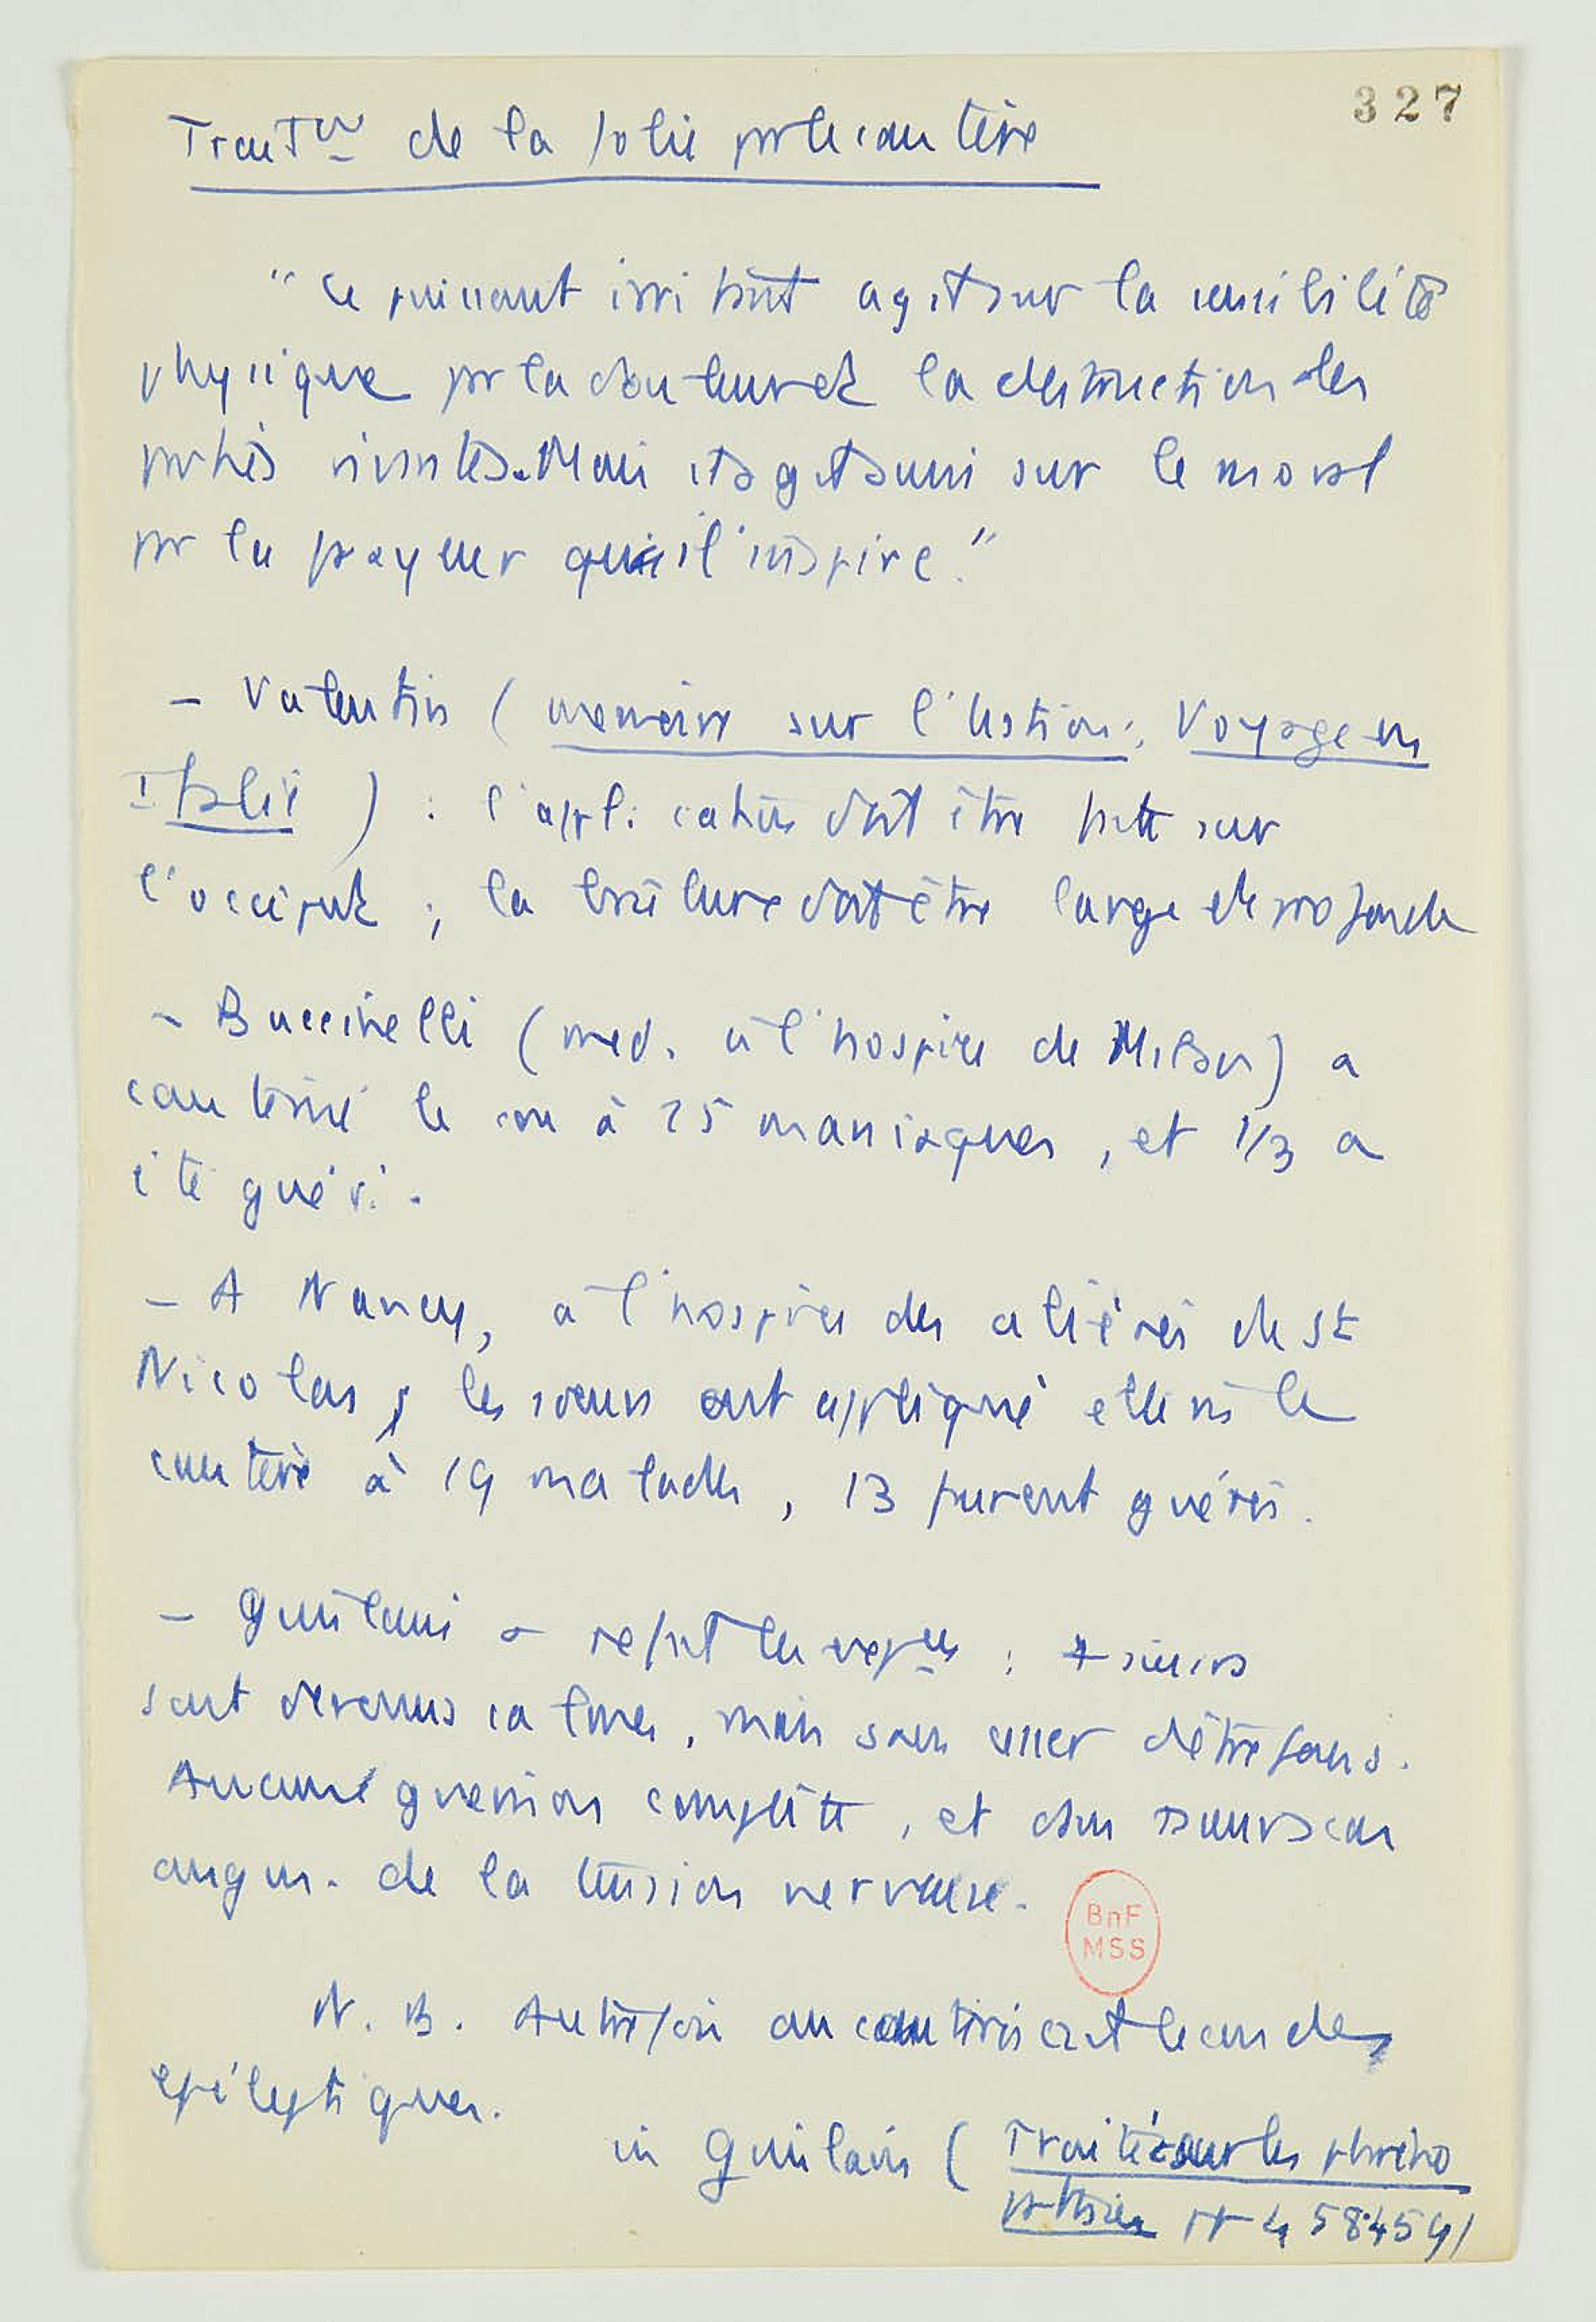 327
Traitm de la folie par le cautère
"Ce puissant irritant agit sur la sensibilité
physique par la douleur et la destruction des
parties vivantes. Mais it agit aussi sur le moral
par la frayeur qu'il inspire."
- Valentin (memoire sur l'Ustion; Voyage en
Italie) : l'application doit être faite sur
l'occiput ; la brûlure doit être large et profonde
- Buccinelli (med. à l'hospice de Milan) a
cautérisé le cou à 25 maniaques, et 1/3 a
été guéri.
- A Nancy, à l'hospice des aliénés de St
Nicolas, les sœurs ont appliqué elles ms le
cautère à 19 malades, 13 furent guéris.
- Guislain a refait les expces :
sont devenus calmes, mais sans cesser d'être fous.
Aucune guérison complète, et dans cas
augm. de la tension nerveuse.
BnF
MSS
N. B. Autrefois on cautérisait le cou des
épileptiques.
in Guislain (Traité sur les phréno
pathies pp 458-459)